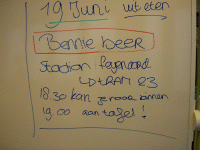 19 Juni uit eten
Bennie beer
Stadion feyenoord
↳ TRAM 23
18.30 kan je naar binnen
19.00 aan tafel!